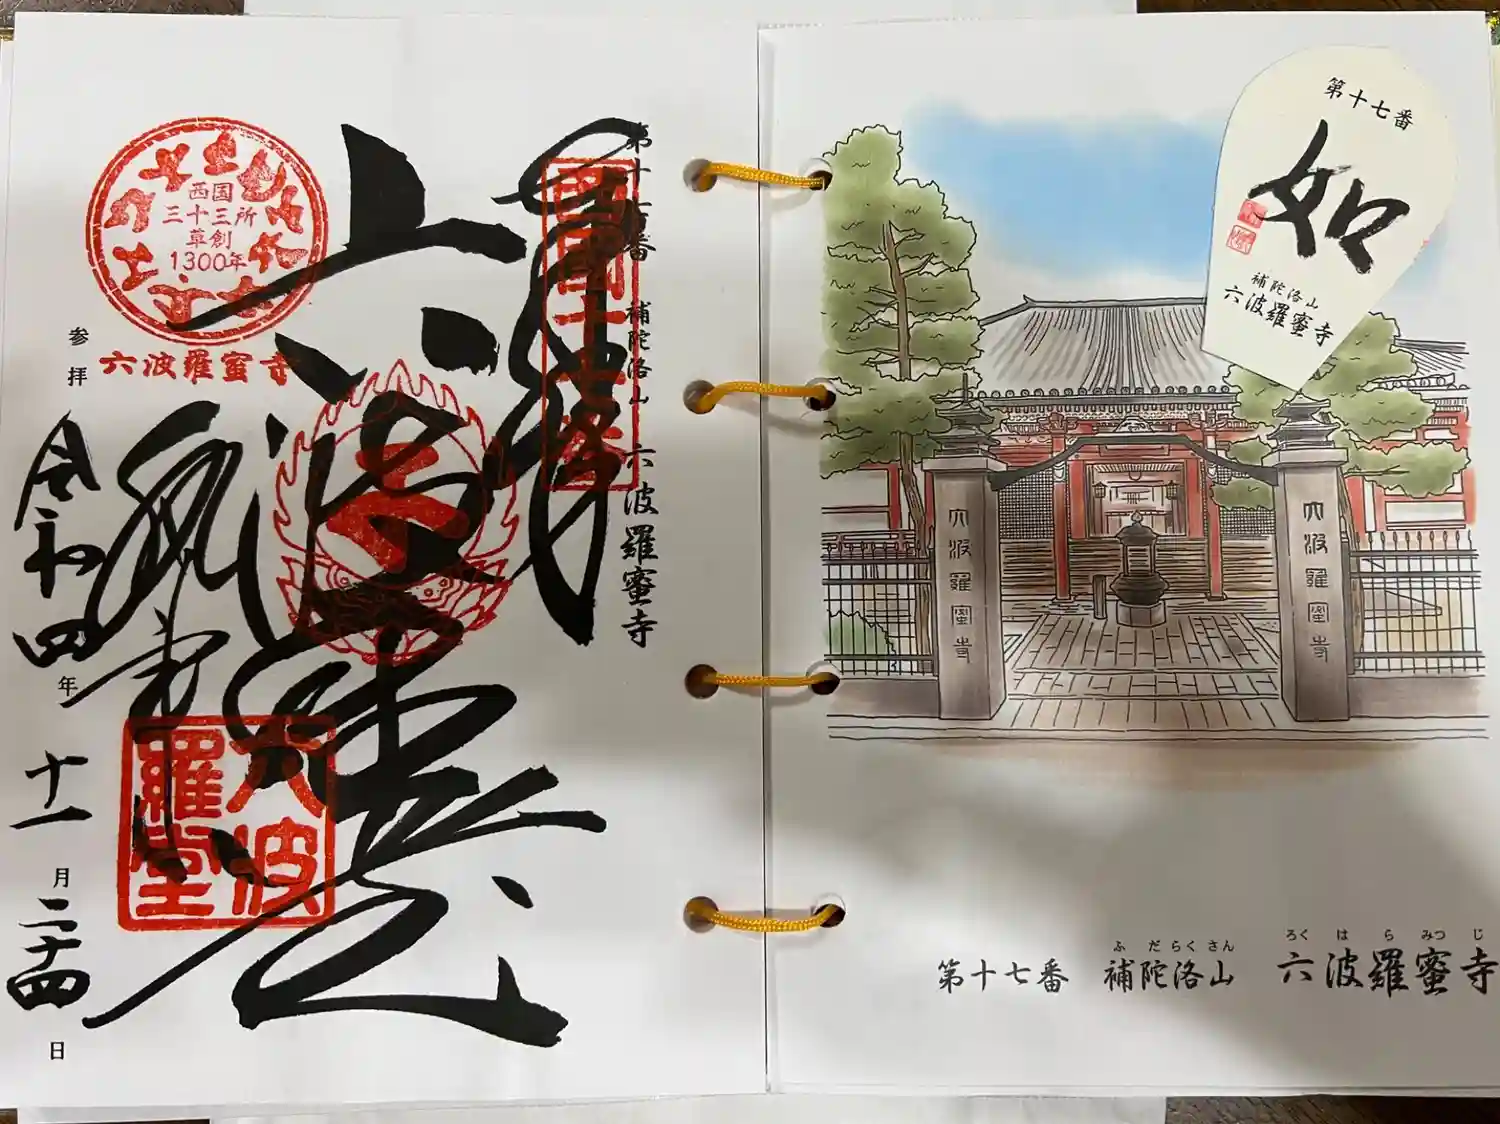 第十七番 補陀洛山 六波羅蜜寺
奉拝
西国
三十三所
草創
1300年
六波羅蜜寺
参拝
令和四年十一月二十四日
六波羅堂
六波羅
第十七番
如
補陀洛山
六波羅蜜寺
六波羅蜜寺
六波羅蜜寺
ふだらくさん ろくはらみつじ
第十七番 補陀洛山 六波羅蜜寺